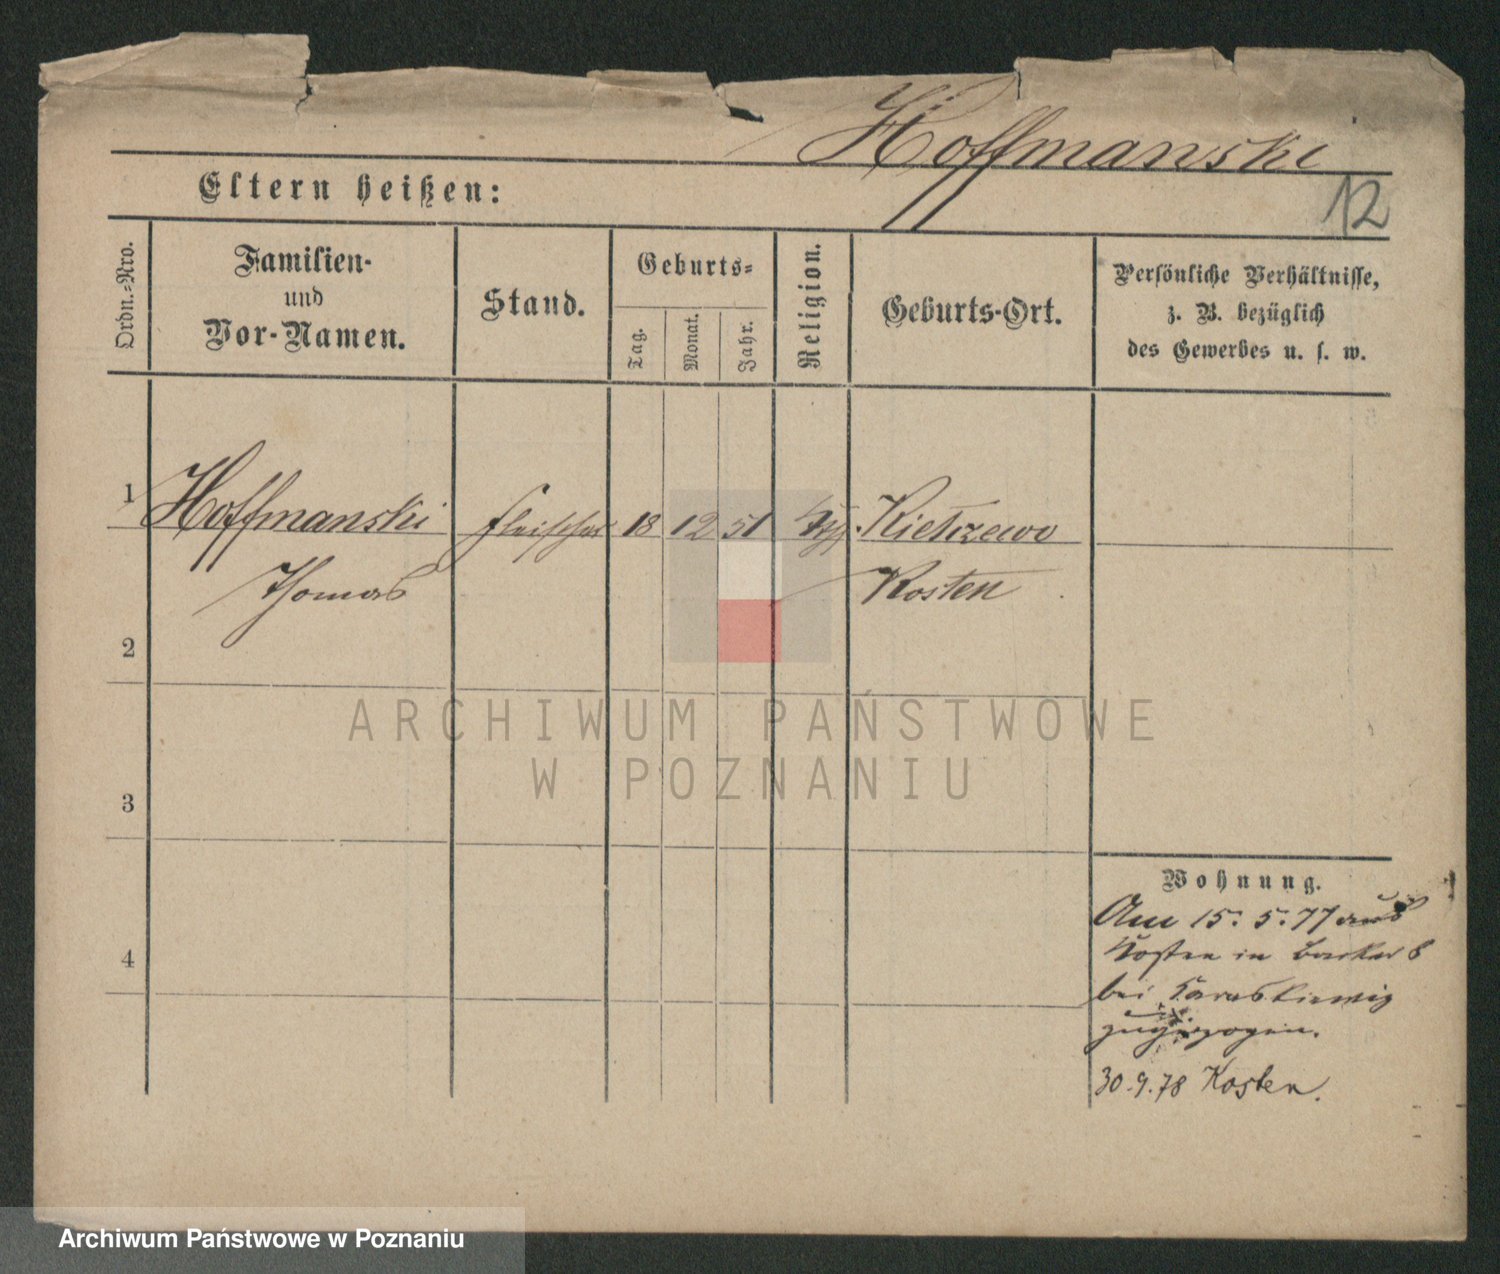 Hoffmanski
12
Eltern heißen:
Ordn.-Nro.
Familien-
und
Vor-Namen.
Stand.
Geburts-
Tag.
Monat.
Jahr.
Religion.
Geburts-Ort.
Persönliche Verhältnisse,
z. B. bezüglich
des Gewerbes u. s. w.
1 Hoffmanski Fleischer 18 12 51 Kielczewo
Thomas Kosten
2
ARCHIWUM PAŃSTWOWE
W POZNANIU
3
Wohnung.
Am 15. 5. 77 aus
Kosten in
4
bei
zugezogen.
30. 9. 78 Kosten.
Archiwum Państwowe w Poznaniu